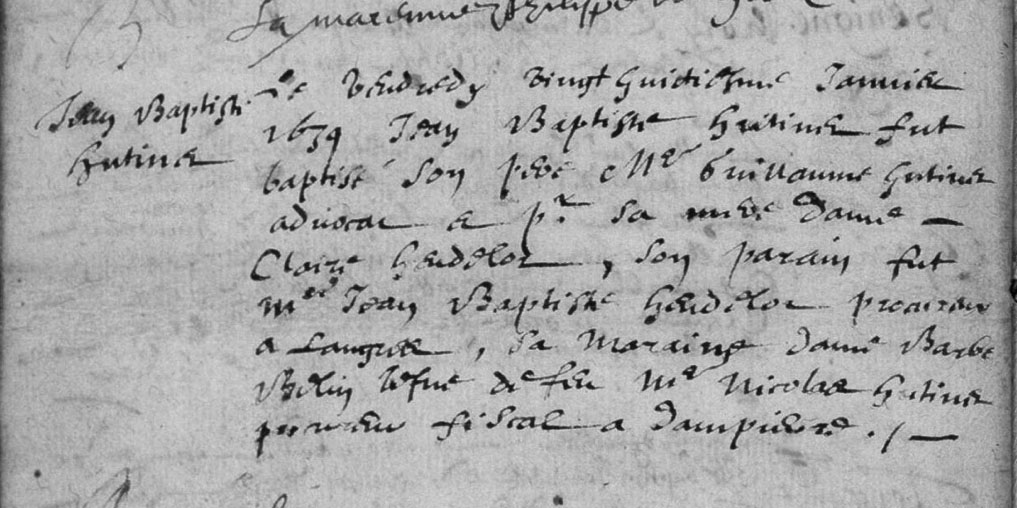 La marenne Philippe
Jean Baptiste
Hutiner
Le Vendredy Vingt huictiesme Januier
1639 Jean Baptiste Hutiner fut
baptisé Son pere Mre Guillaume Hutiner
aduocat e pr. Sa mere dame —
Claire Heudelot, Son parain fut
Mre Jean Baptiste Heudelot procureur
a Langres, Sa Maraine dame Barbe
Belin vefue de feu Mre Nicolas Hutiner
procureur fiscal a dampierre ./—